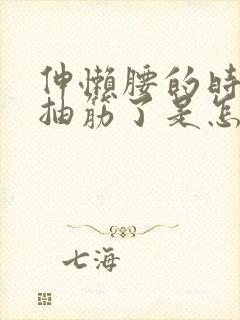 伸懒腰的时
抽筋了是怎
七海